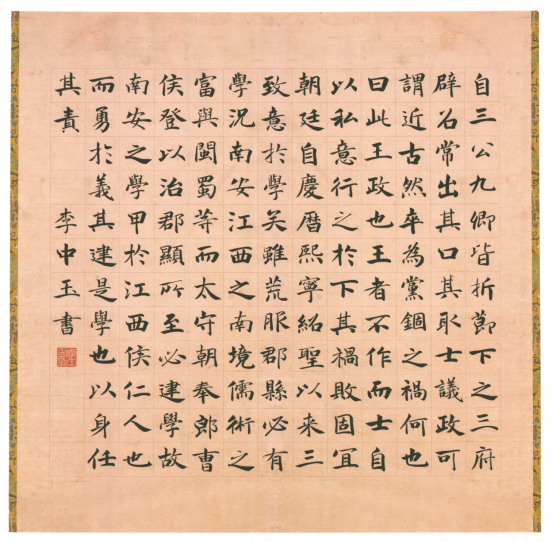 自三公九卿皆折節下之三府
辟召常出其口其取士議政可
謂近古然卒為黨錮之禍何也
曰此王政也王者不作而士自
以私意行之於下其禍敗固宜
朝廷自慶暦熙寧紹聖以来三
致意於學矣雖荒服郡縣必有
學況南安江西之南境儒術之
富與閩蜀等而太守朝奉郎曹
侯登以治郡顯所至必建學故
南安之學甲於江西侯仁人也
而勇於義其建是學也以身任
其責 李中玉書